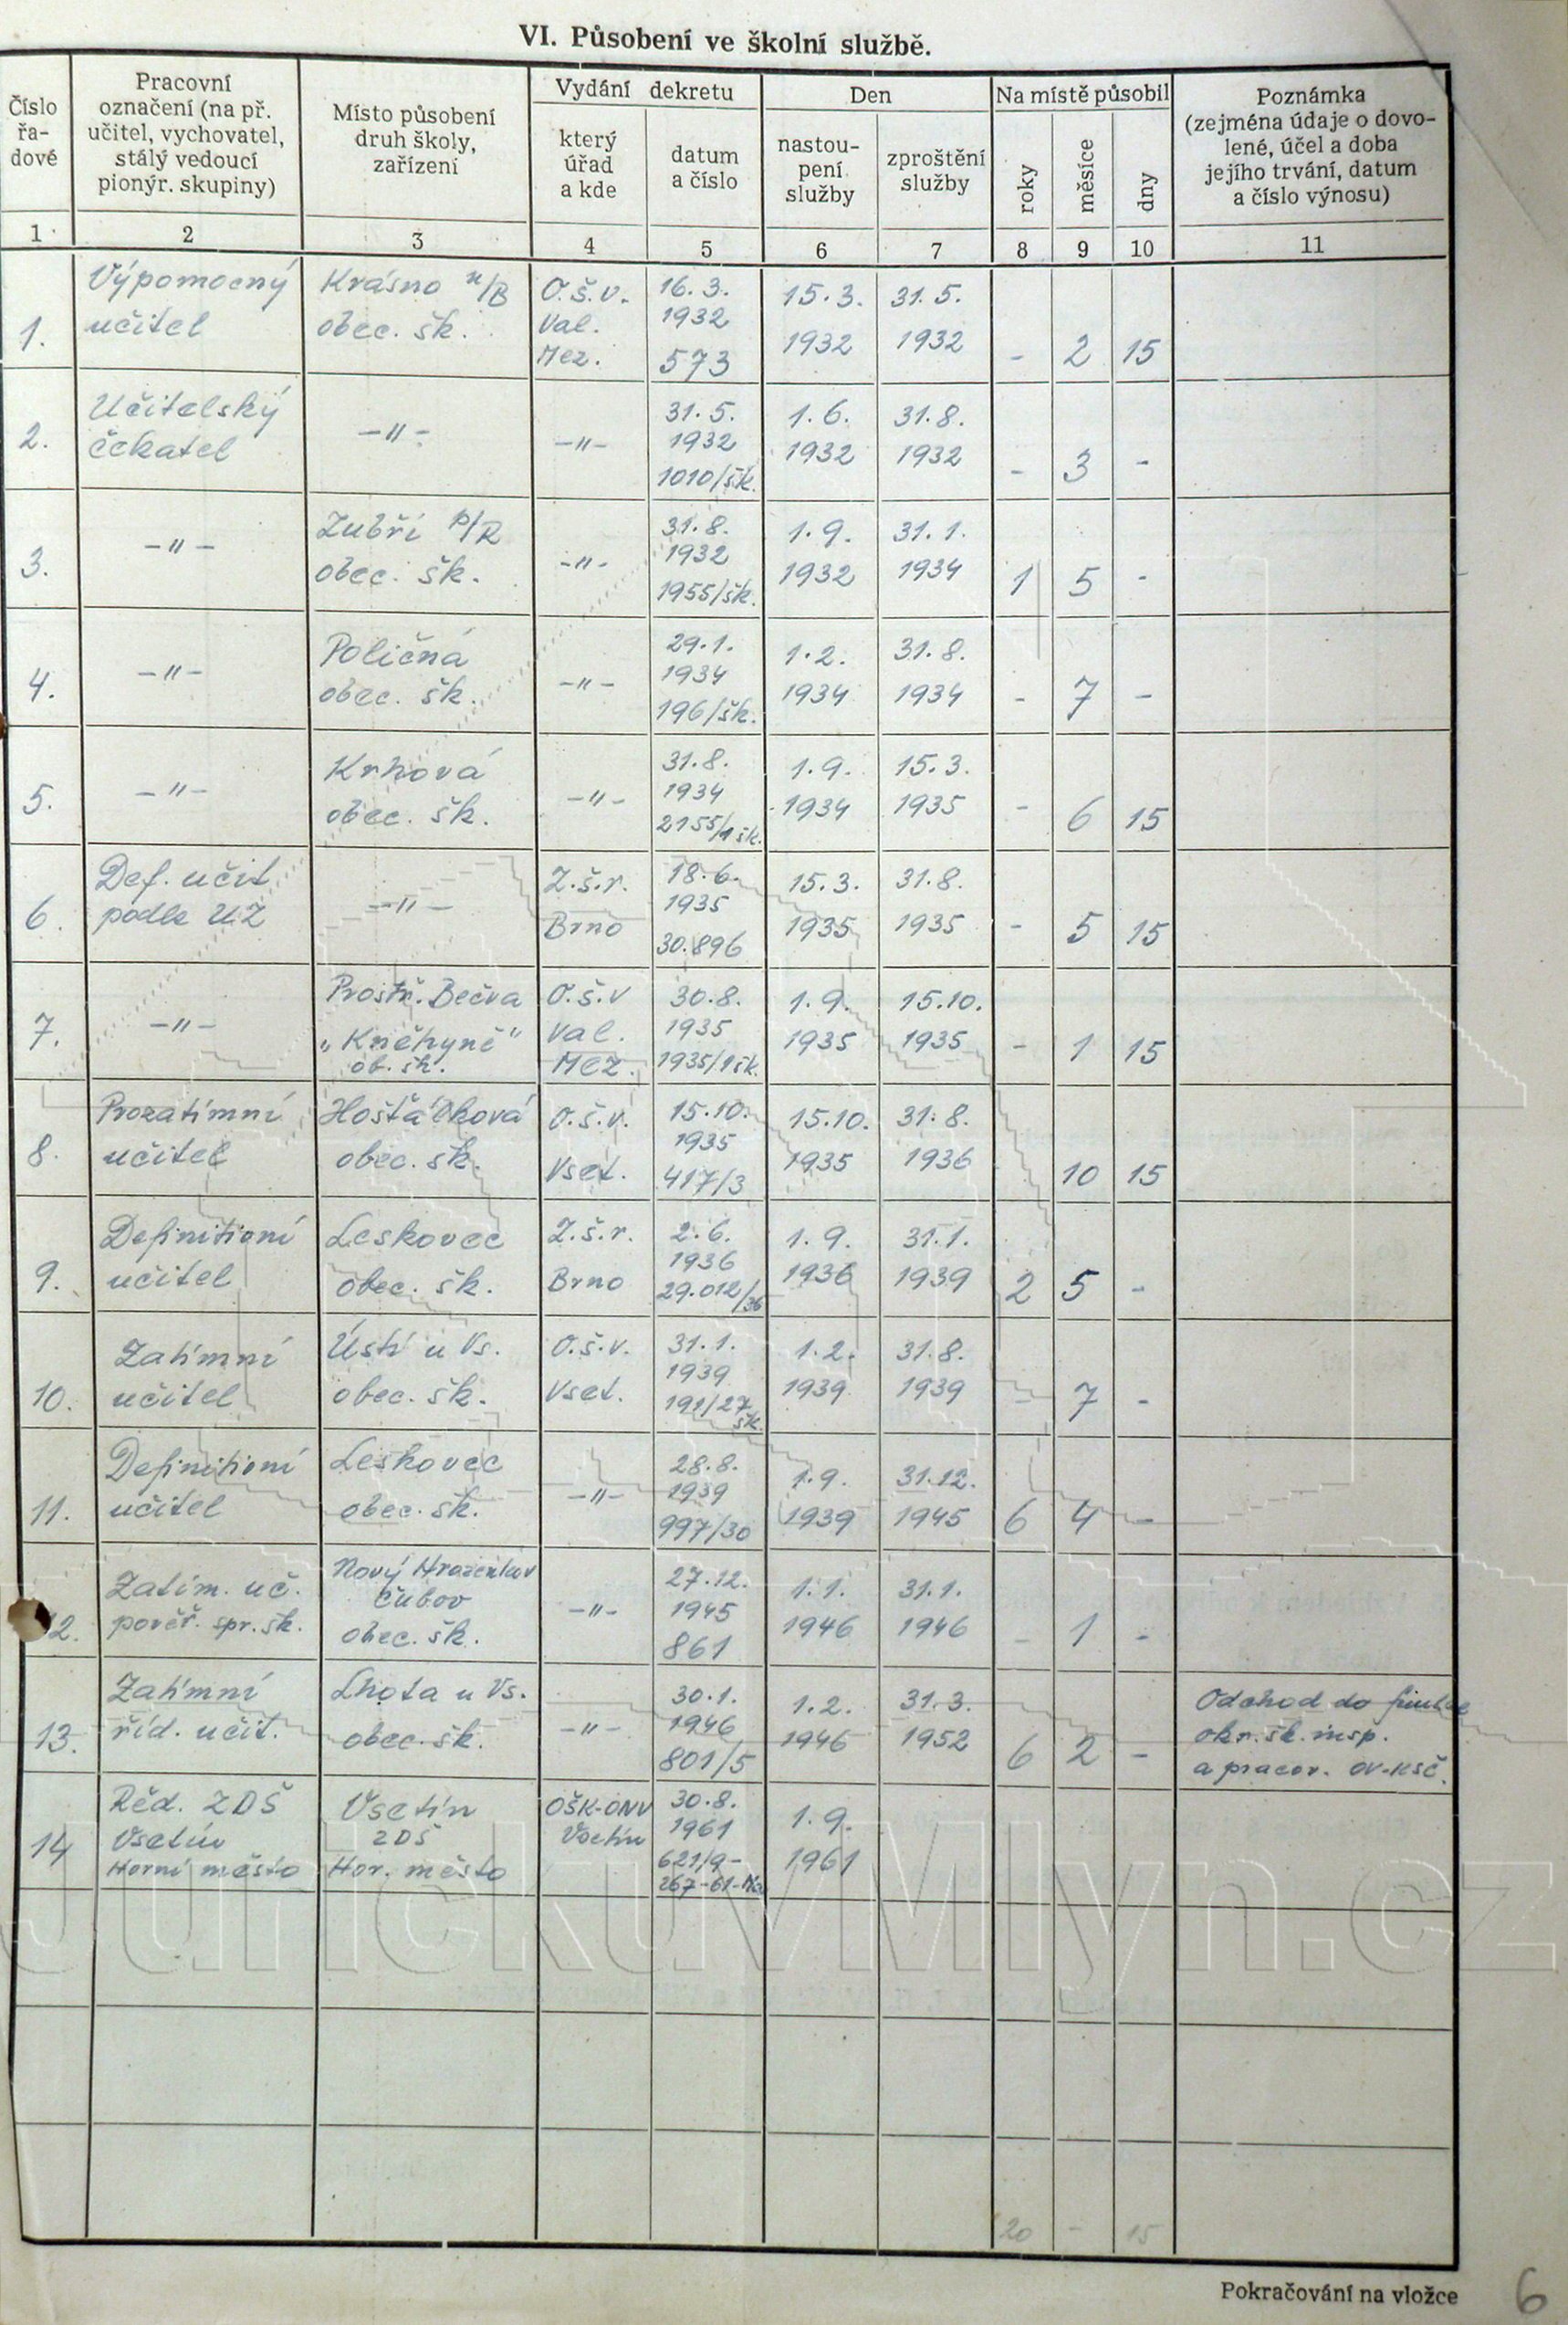 VI. Působení ve školní službě.
Číslo řa-dové
Pracovní označení (na př. učitel, vychovatel, stálý vedoucí pionýr. skupiny)
Místo působení druh školy, zařízení
Vydání dekretu
který úřad a kde
datum a číslo
Den
nastou-pení služby
zproštění služby
Na místě působil
roky
měsíce
dny
Poznámka (zejména údaje o dovo-lené, účel a doba jejího trvání, datum a číslo výnosu)
1 2 3 4 5 6 7 8 9 10 11
1. Výpomocný učitel Krásno n/B obec. šk. O.š.v. Val. Mez. 16.3. 1932 573 15.3. 1932 31.5. 1932 - 2 15
2. Učitelský čekatel -"- -"- 31.5. 1932 1010/šk. 1.6. 1932 31.8. 1932 - 3 -
3. -"- Zubří p/R obec. šk. -"- 31.8. 1932 1955/šk. 1.9. 1932 31.1. 1934 1 5 -
4. -"- Poličná obec. šk. -"- 29.1. 1934 196/šk. 1.2. 1934 31.8. 1934 - 7 -
5. -"- Krhová obec. šk. -"- 31.8. 1934 2155/1 šk. 1.9. 1934 15.3. 1935 - 6 15
6. Def. učit podle UZ -"- Z.š.r. Brno 18.6. 1935 30.896 15.3. 1935 31.8. 1935 - 5 15
7. -"- Prostř. Bečva „Kněhyně" ob. šk. O.š.v Val. Mez. 30.8. 1935 1935/1 šk. 1.9. 1935 15.10. 1935 - 1 15
8. Prozatímní učitel Hošťálková obec. šk. O.š.v. Vset. 15.10. 1935 417/3 15.10. 1935 31.8. 1936 10 15
9. Definitivní učitel Leskovec obec. šk. Z.š.r. Brno 2.6. 1936 29.012/36 1.9. 1936 31.1. 1939 2 5 -
10. Zatímní učitel Ústí u Vs. obec. šk. O.š.v. Vset. 31.1. 1939 191/27 šk. 1.2. 1939 31.8. 1939 - 7 -
11. Definitivní učitel Leskovec obec. šk. -"- 28.8. 1939 997/30 1.9. 1939 31.12. 1945 6 4 -
12. Zatím. uč. pověř. spr. šk. Nový Hrozenkov Čubov obec. šk. -"- 27.12. 1945 861 1.1. 1946 31.1. 1946 - 1 -
13. Zatímní říd. učit. Lhota u Vs. obec. šk. -"- 30.1. 1946 801/5 1.2. 1946 31.3. 1952 6 2 - Odchod do funkce okr. šk. insp. a pracov. OV-KSČ.
14 Řed. ZDŠ Vsetín Horní město Vsetín ZDŠ Hor. město OŠK-ONV Vsetín 30.8. 1961 621/9- 267-61- 1.9. 1961
JurickuvMlyn.cz
20 - 15
Pokračování na vložce
6